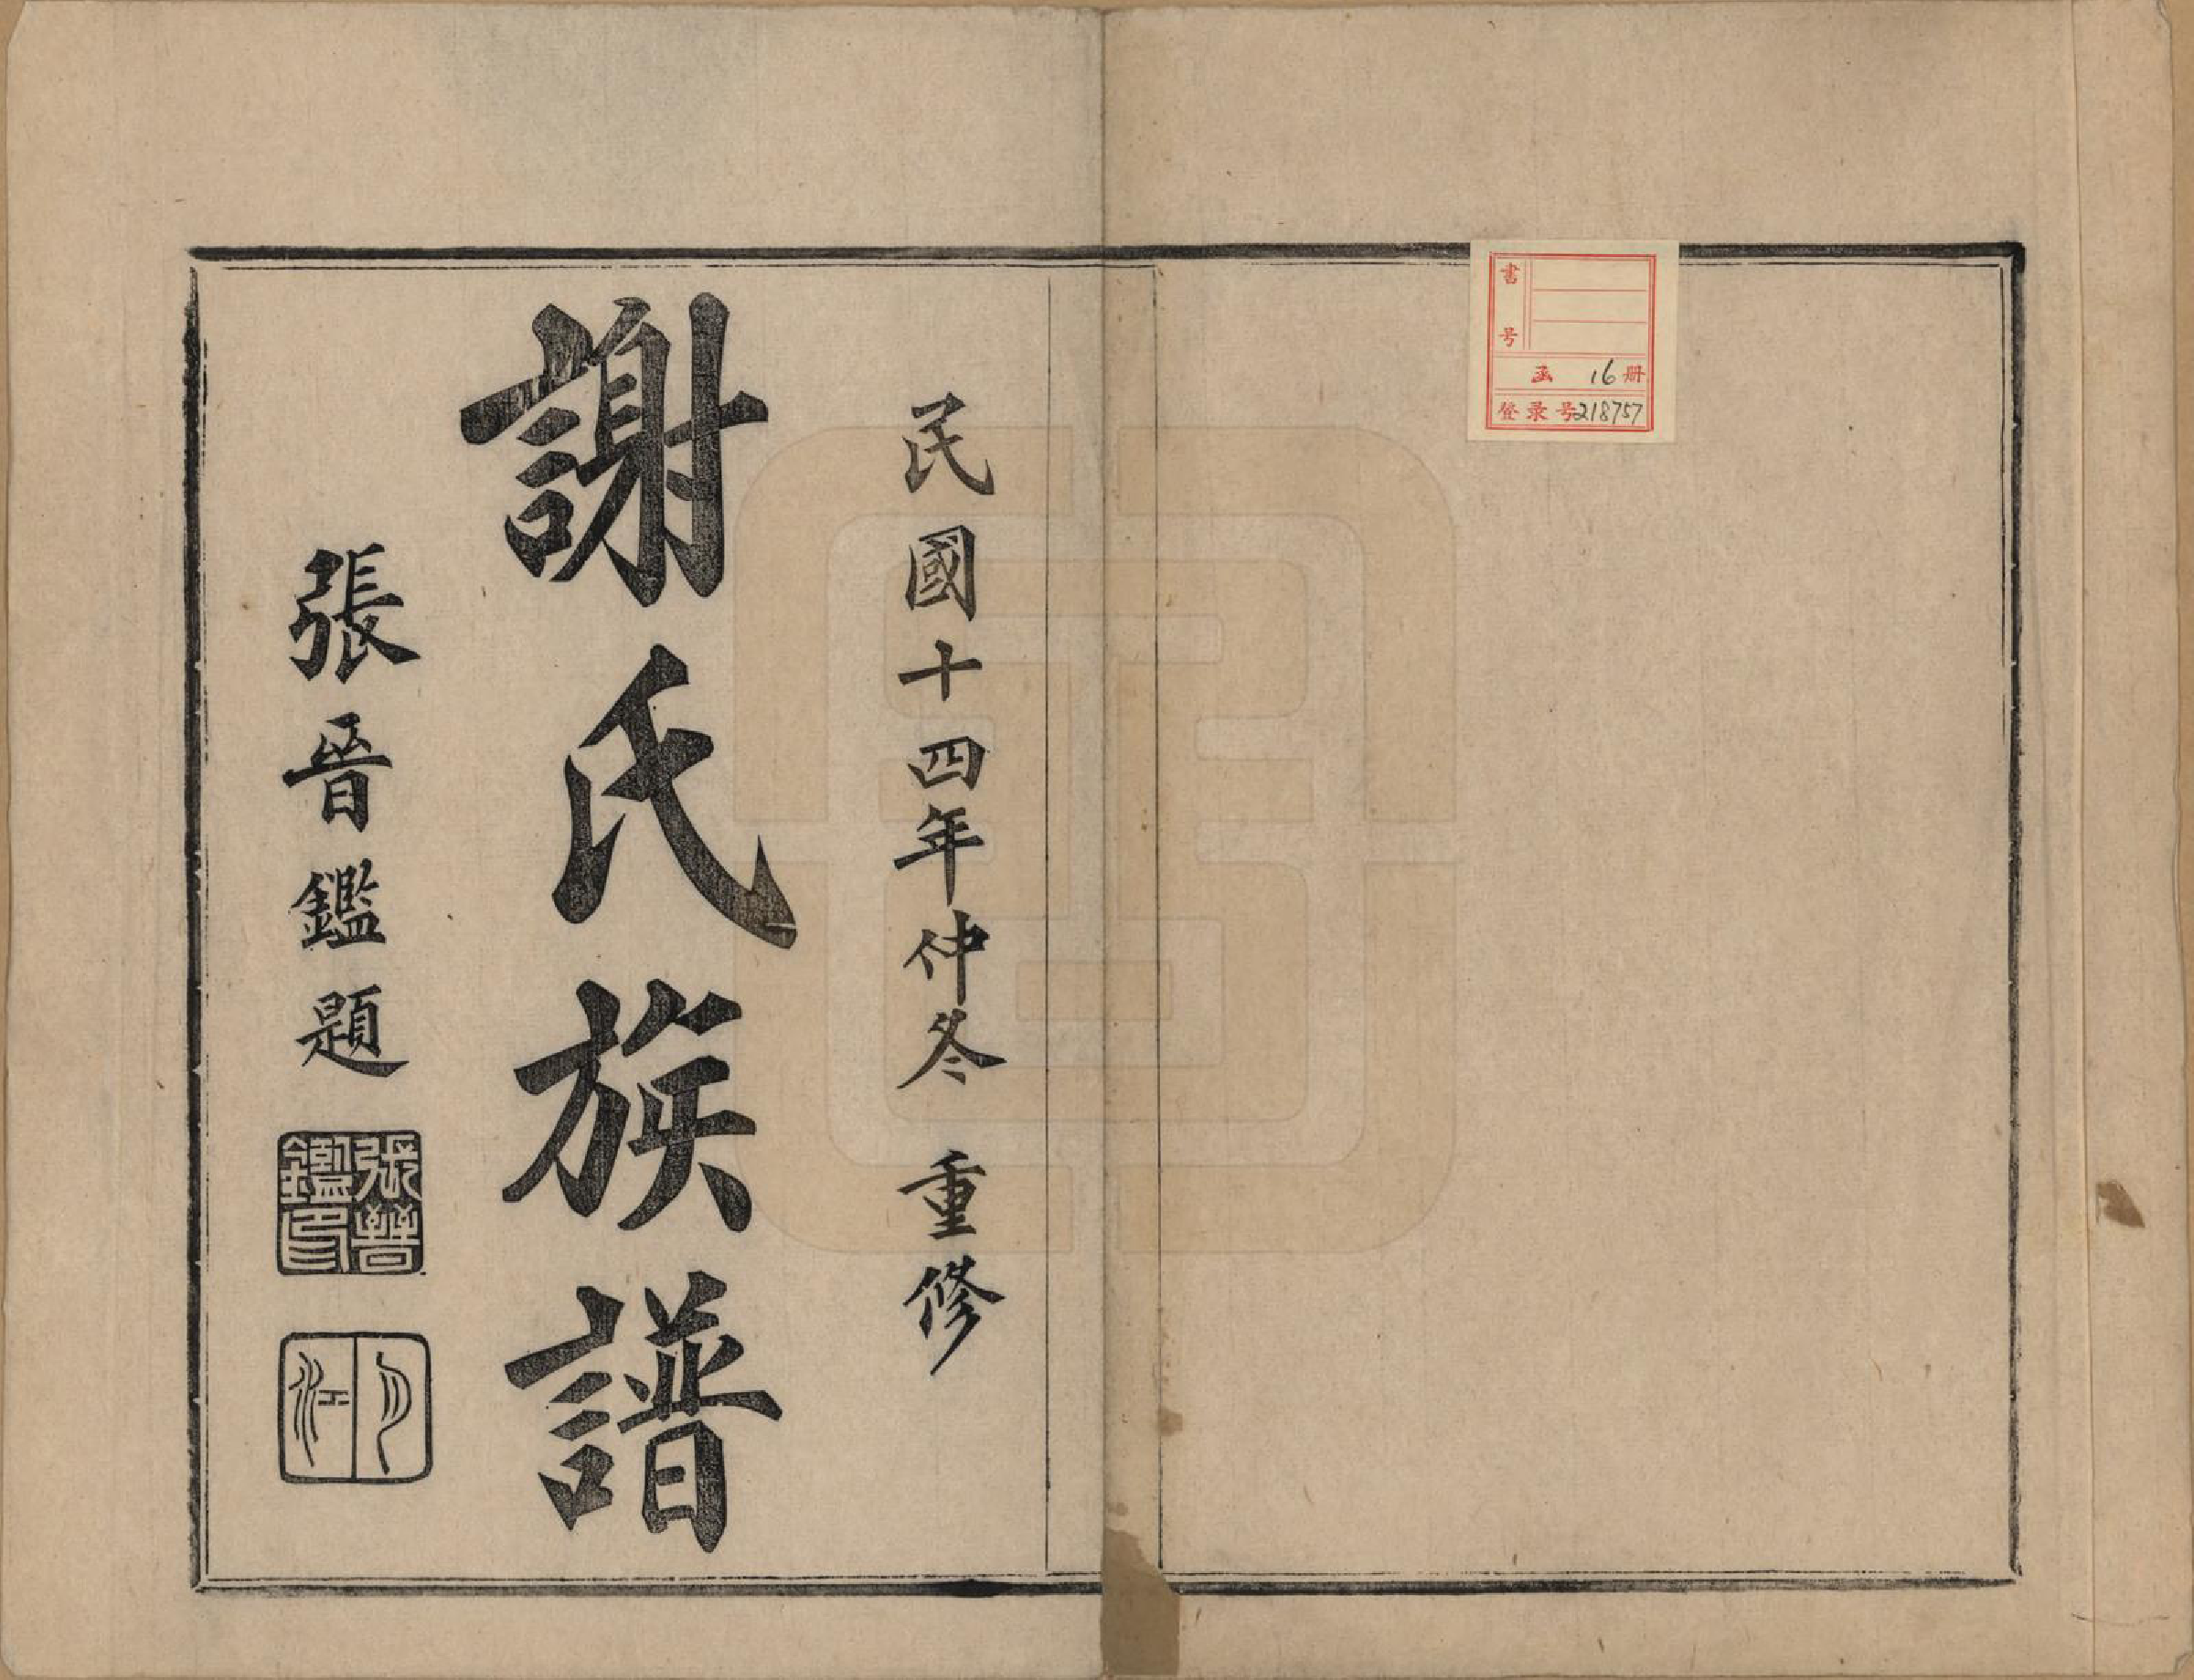 書号
函 16 册
登录号218757
民國十四年仲冬 重修
謝氏族譜
張晉鑑題
張晉鑑印
月江